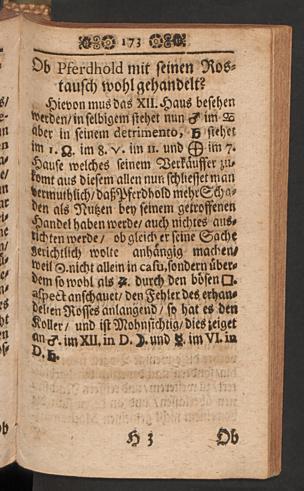 173
Ob Pferdhold mit seinen Ros-
tausch wohl gehandelt?
Hievon mus das XII. Haus besehen
werden/ in selbigem stehet nun ♂ im ♉
aber in seinem detrimento, ♄ stehet
im 1. ♌. im 8. ♈. im 11. und ⊕ im 7.
Hause welches seinem Verkäuffer zu-
komt aus diesem allen nun schliesset man
vermuthlich/ daß Pferdhold mehr Scha-
den als Nutzen bey seinem getroffenen
Handel haben werde/ auch nichtes aus-
richten werde/ ob gleich er seine Sache
gerichtlich wolte anhängig machen/
weil ☉. nicht allein in casu, sondern über-
dem so wohl als durch den bösen □.
aspect anschauet/ den Fehler des erhan-
delten Rosses anlangend/ so hat es den
Koller/ und ist Mohnsichtig/ dies zeiget
an ♂. im XII, in D. ☽. und ☿. im VI. in
D. ♄.
H 3
Ob